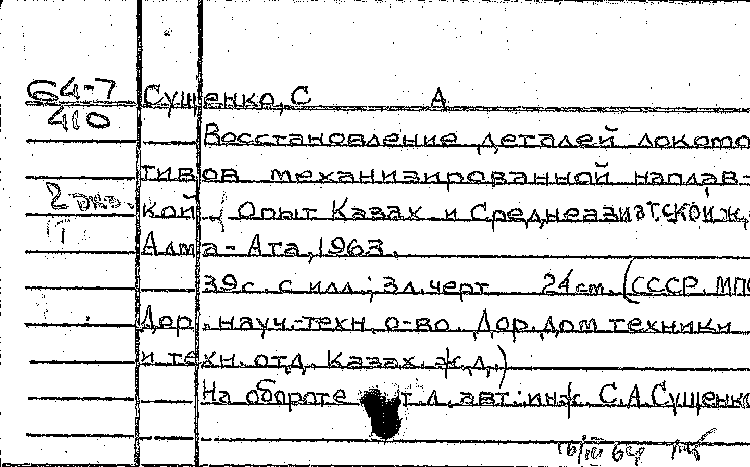 64-7
410
Сущенко, С А
Восстановление деталей локомо
тивов механизированной наплав-
2 экз.
кой. (Опыт Казах. и Среднеазиатской ж.
Алма-Ата, 1963.
39с. с илл.; 3л. черт 24см. (СССР. МПС
Дор. науч.-техн. о-во. Дор. дом техники
и техн. отд. Казах. ж.д.)
На обороте т.л. авт.: инж. С.А.Сущенко
16/III 64